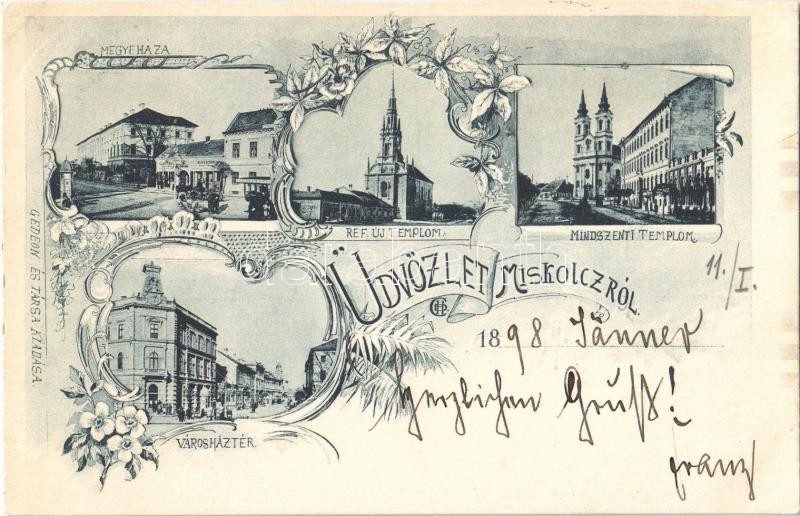 MEGYEHÁZA
REF. ÚJ TEMPLOM.
MINDSZENTI TEMPLOM.
GEDEON ÉS TÁRSA KIADÁSA.
ÜDVÖZLET MISKOLCZRÓL.
11./I.
1898 Jänner
Herzlichen Gruß!
Franz
VÁROSHÁZTÉR.